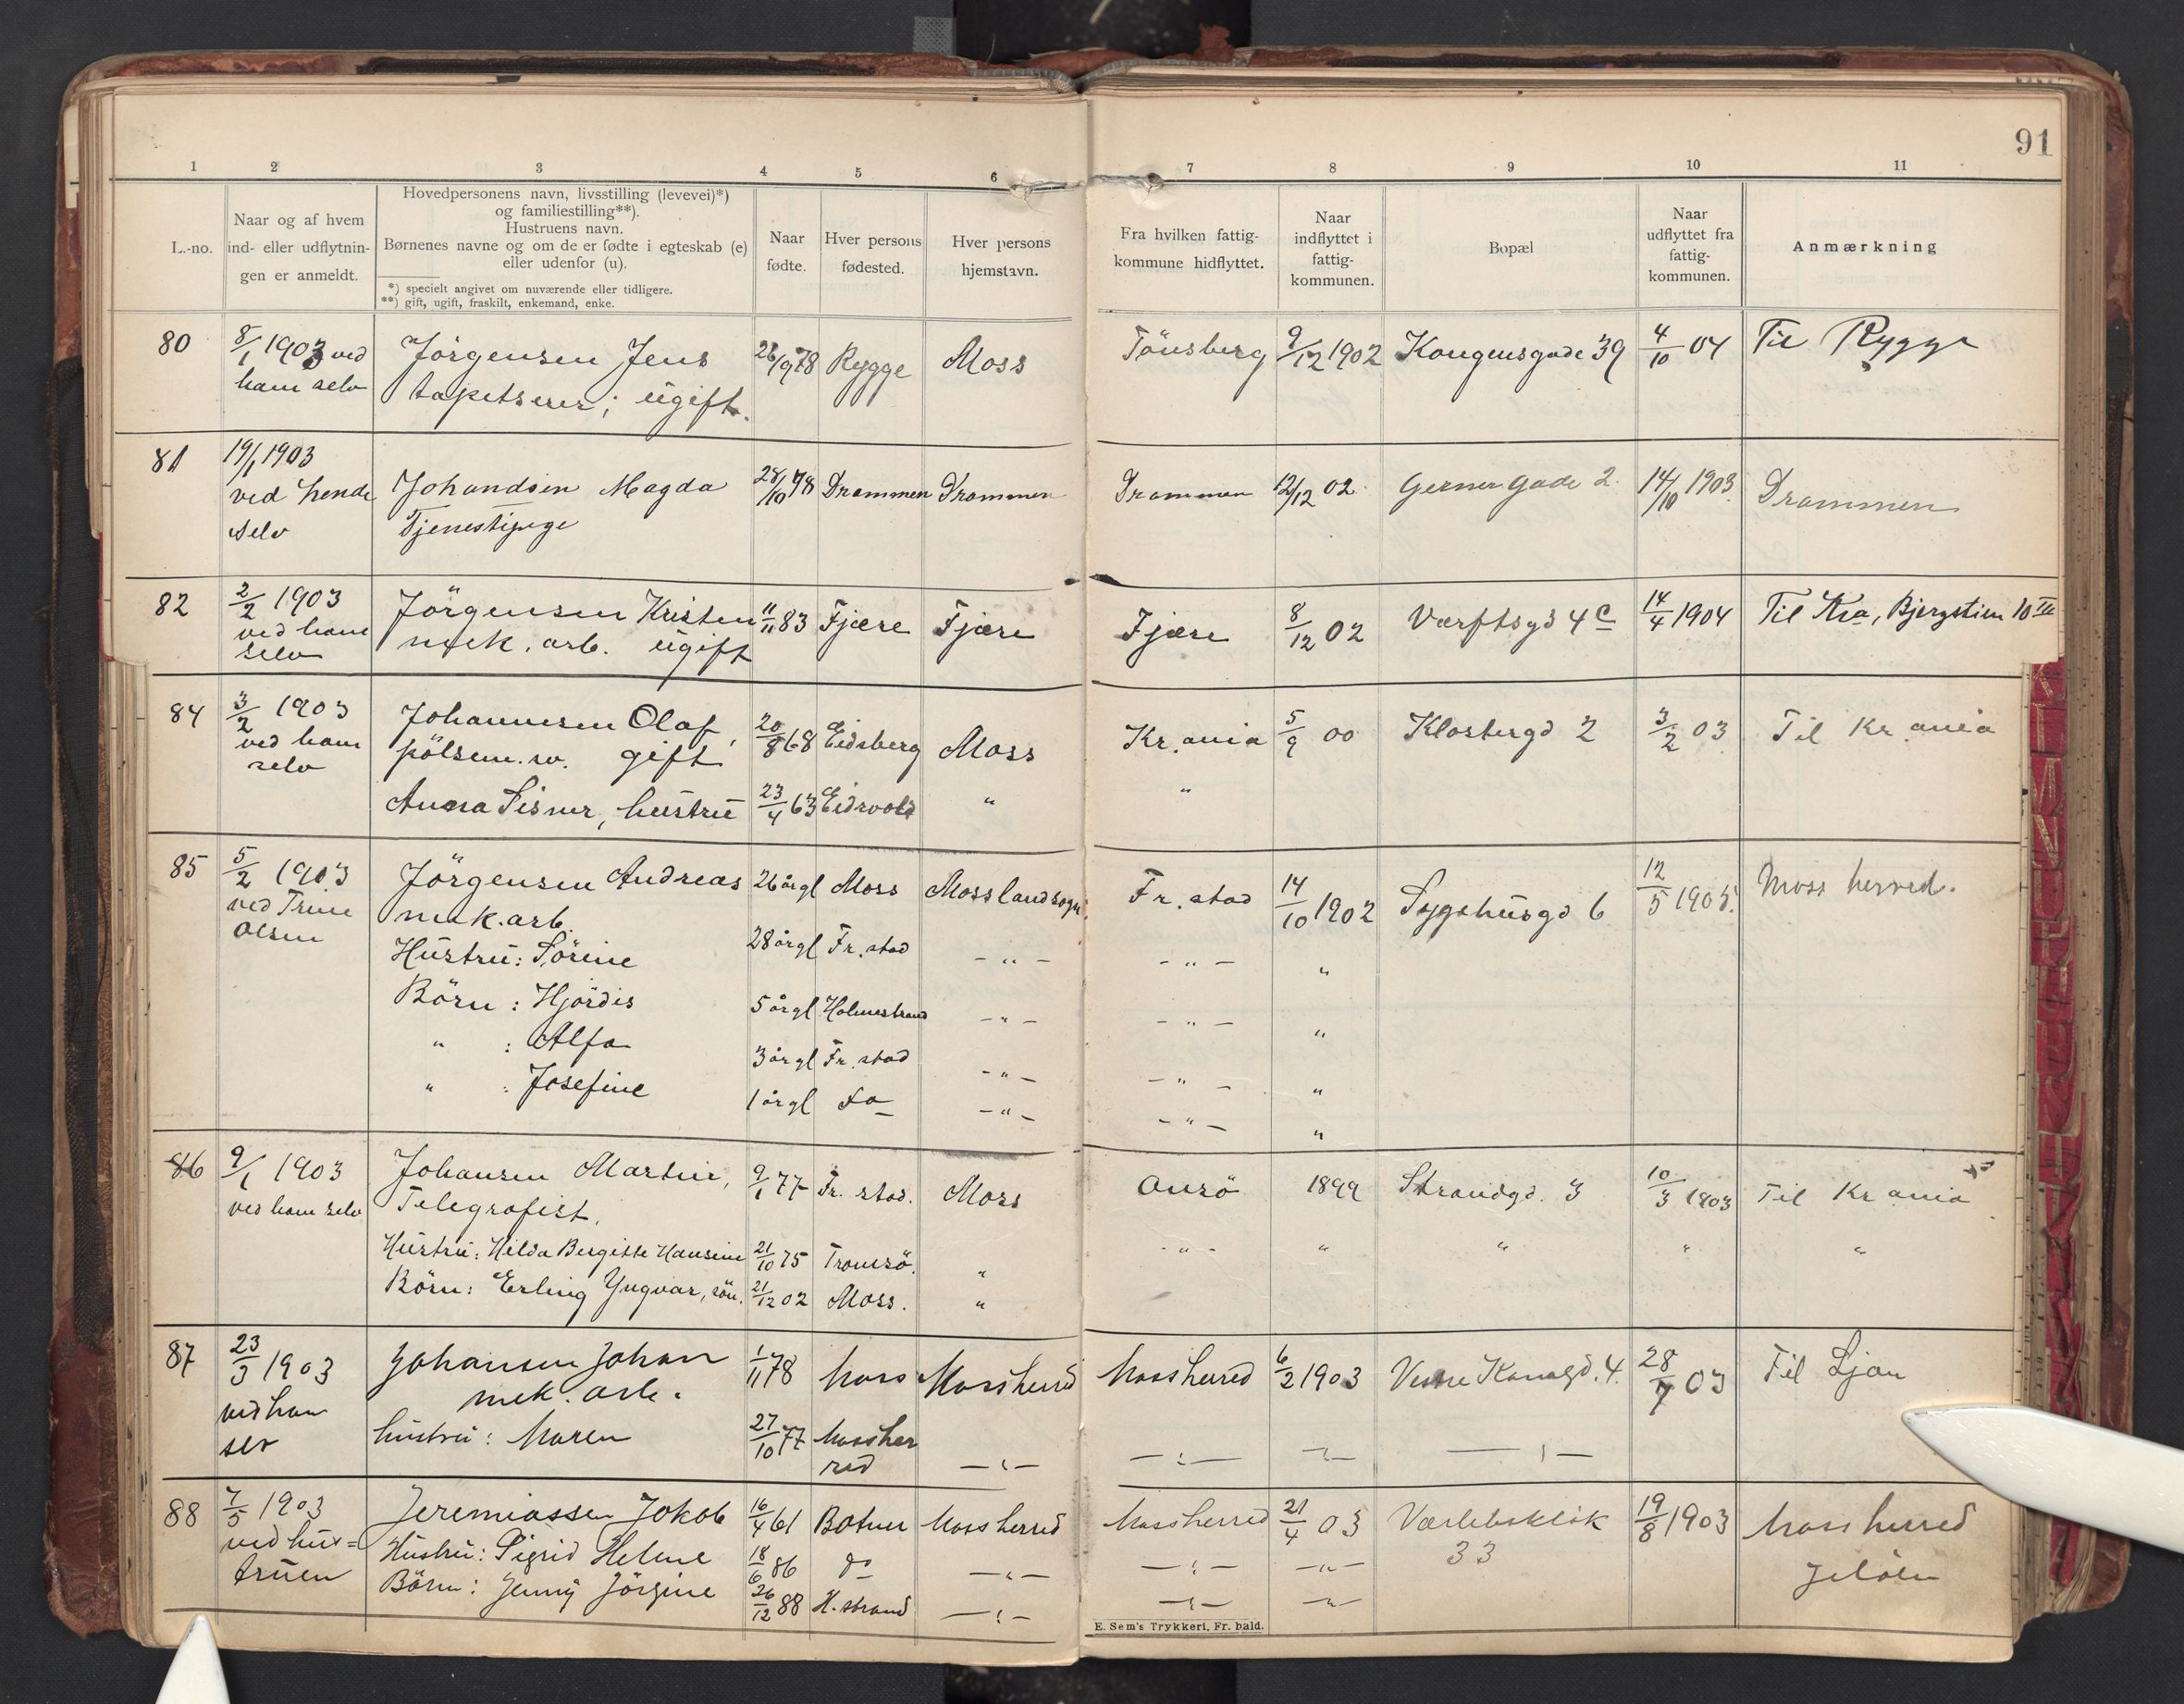 91
1 2 3 4 5 6 7 8 9 10 11
L.-no.
Naar og af hvem
ind- eller udflytnin-
gen er anmeldt.
Hovedpersonens navn, livsstilling (levevei)*)
og familiestilling**).
Hustruens navn.
Børnenes navne og om de er fødte i egteskab (e)
eller udenfor (u).
*) specielt angivet om nuværende eller tidligere.
**) gift, ugift, fraskilt, enkemand, enke.
Naar
fødte.
Hver persons
fødested.
Hver persons
hjemstavn.
Fra hvilken fattig-
kommune hidflyttet.
Naar
indflyttet i
fattig-
kommunen.
Bopæl
Naar
udflyttet fra
fattig-
kommunen.
Anmærkning
80 8/1 1903 ved Jörgensen Jens 26/9 78 Rygge Moss Tönsberg 9/12 1902 Kongensgade 39 4/10 04 Til Rygge
ham selv tapetserer; ugift.
81 19/1 1903
ved hende Johandsen Magda 28/10 78 Drammen Drammen Drammen 12/12 02 Gerner gade 2. 14/10 1903 Drammen
selv Tjenestepige
82 2/2 1903 Jörgensen Kristen 11/11 83 Fjære Fjære Fjære 8/12 02 Værftsgd 4 c 14/4 1904 Til Kra, Bjergstien 10 III
ved ham mek. arb. ugift
selv
84 3/2 1903 Johannesen Olaf, 20/8 68 Eidsberg Moss Kr.ania 5/9 00 Klostergd 2 3/2 03 Til Kr ania
ved ham pölsem. gift
selv
Anna hustru 23/4 63 Eidsvold " "
85 5/2 1903 Jörgensen Andreas 26 årgl Moss Moss landsogn. Fr.stad 14/10 1902 Sygehusgd 6 12/5 1905. Moss herred.
ved Trine mek. arb.
Olsen
Hustru: Sörine 28 årgl Fr.stad - " - - " - "
Börn: Hjördis 5 årgl Holmestrand - " - - " - "
" : Alfa 3 årgl Fr.stad - " - - " - "
" : Josefine 1 årgl do - " - - " - "
86 9/1 1903 Johansen Martin, 9/1 77 Fr. stad. Moss Onsö 1899 Strandgd. 3 10/3 1903 Til Kr ania
ved ham selv Telegrafist.
Hustru: Hilda Bergitte Hansine 21/10 75 Tromsö. " - " - " " " "
Börn: Erling Yngvar, sön. 21/12 02 Moss. "
87 23/3 1903 Johansen Johan 1/11 78 Moss Moss herred Moss herred 6/2 1903 Vestre Kanalgd. 4. 28/7 03 Til Ljan
ved ham mek. arb.
selv hustru: Maren 27/10 77 Moss her
red - " - - " - - " - - " -
88 7/5 1903 Jeremiassen Jakob 16/4 61 Botner Moss herred Moss herred 21/4 03 Værlebakken 19/8 1903 Moss herred
ved hus= Hustru: Sigrid Helene 18/6 86 do - " - - " - - " - 33 Jelöen
truen Börn: Jenny Jörgine 26/12 88 H.strand - " - - " - - " -
E. Sem's Trykkeri, Fr. hald.